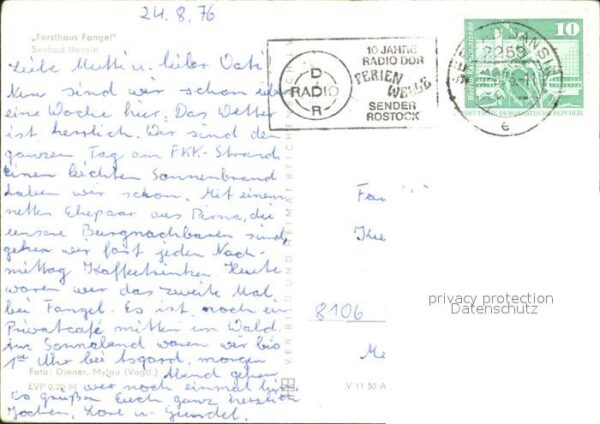 24.8.76
„Forsthaus Fangel"
Seebad Bansin
Liebe Mutti u. lieber Vati!
Nun sind wir schon über
eine Woche hier. Das Wetter
ist herrlich. Wir sind den
ganzen Tag am FKK-Strand
Einen leichten Sonnenbrand
haben wir schon. Mit einem
netten Ehepaar aus Pirna, die
unsere Burgnachbaren sind,
gehen wir fast jeden Nach-
mittag Kaffeetrinken. Heute
waren wir das zweite Mal
bei Fangel. Es ist noch ein
Privatcafé mitten im Wald.
Am Sonnabend waren wir bis
1 Uhr bei Asgard, morgen
Foto: Diener, Mylau (Vogtl.)
Abend gehen
EVP 0,20 M
wir noch einmal hin.
Es grüßen Euch ganz herzlich
Jochen, u.
VERLAG BILD UND HEIMAT REICHENBACH
V 11 50 A
10 JAHRE
RADIO DDR
FERIEN
WELLE
SENDER
ROSTOCK
RADIO
DDR
SEEBAD BANSIN
2255
e
10
DEUTSCHE DEMOKRATISCHE REPUBLIK
Fam
8106
privacy protection
Datenschutz